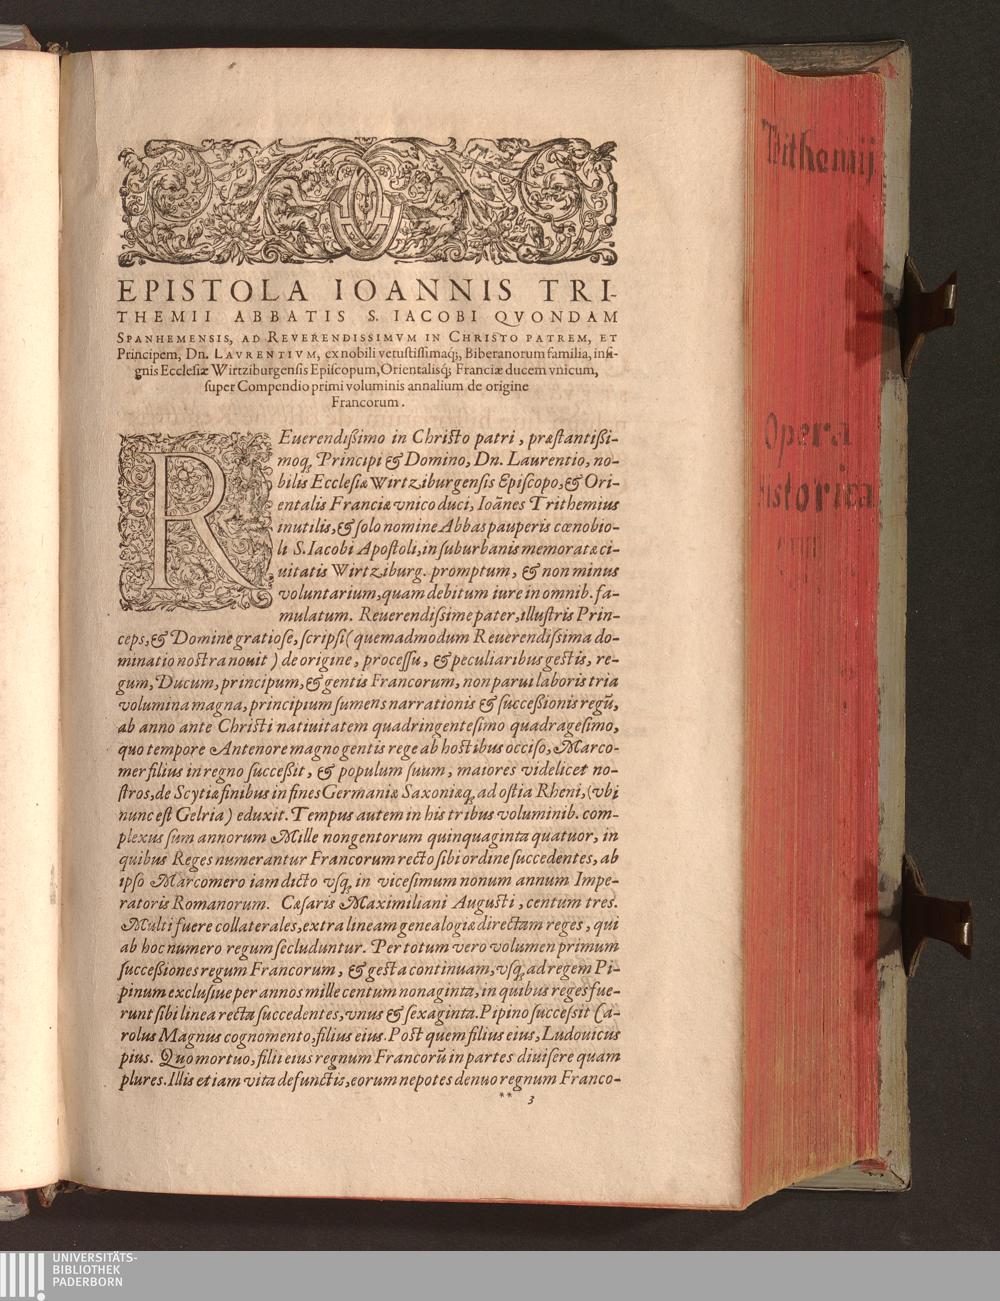 EPISTOLA IOANNIS TRI-
THEMII ABBATIS S. IACOBI QVONDAM
SPANHEMENSIS, AD REVERENDISSIMVM IN CHRISTO PATREM, ET
Principem, Dn. LAVRENTIVM, ex nobili vetustissimaq́;, Biberanorum familia, insi-
gnis Ecclesiæ Wirtziburgensis Episcopum, Orientalisq́; Franciæ ducem vnicum,
super Compendio primi voluminis annalium de origine
Francorum.
REuerendißimo in Christo patri, præstantißi-
moq; Principi & Domino, Dn. Laurentio, no-
bilis Ecclesiæ Wirtziburgensis Episcopo, & Ori-
entalis Franciæ vnico duci, Ioãnes Trithemius
inutilis, & solo nomine Abbas pauperis cœnobio-
li S. Iacobi Apostoli, in suburbanis memoratæ ci-
uitatis Wirtziburg. promptum, & non minus
voluntarium, quam debitum iure in omnib. fa-
mulatum. Reuerendissime pater, illustris Prin-
ceps, & Domine gratiose, scripsi (quemadmodum Reuerendissima do-
minatio nostra nouit) de origine, processu, & peculiaribus gestis, re-
gum, Ducum, principum, & gentis Francorum, non parui laboris tria
volumina magna, principium sumens narrationis & successionis regũ,
ab anno ante Christi natiuitatem quadringentesimo quadragesimo,
quo tempore Antenore magno gentis rege ab hostibus occiso, Marco-
mer filius in regno succeßit, & populum suum, maiores videlicet no-
stros, de Scytiæ finibus in fines Germaniæ Saxoniæq; ad ostia Rheni, (vbi
nunc est Gelria) eduxit. Tempus autem in his tribus voluminib. com-
plexus sum annorum Mille nongentorum quinquaginta quatuor, in
quibus Reges numerantur Francorum recto sibi ordine succedentes, ab
ipso Marcomero iam dicto vsq; in vicesimum nonum annum Impe-
ratoris Romanorum. Cæsaris Maximiliani Augusti, centum tres.
Multi fuere collaterales, extra lineam genealogiæ directam reges, qui
ab hoc numero regum secluduntur. Per totum vero volumen primum
succeßiones regum Francorum, & gesta continuam, vsq; ad regem Pi-
pinum exclusiue per annos mille centum nonaginta, in quibus reges fue-
runt sibi linea recta succedentes, vnus & sexaginta. Pipino successit Ca-
rolus Magnus cognomento, filius eius. Post quem filius eius, Ludouicus
pius. Quo mortuo, filii eius regnum Francorũ in partes diuisere quam
plures. Illis etiam vita defunctis, eorum nepotes denuo regnum Franco-
** 3
Trithemij
Opera
historica
UNIVERSITÄTS-
BIBLIOTHEK
PADERBORN